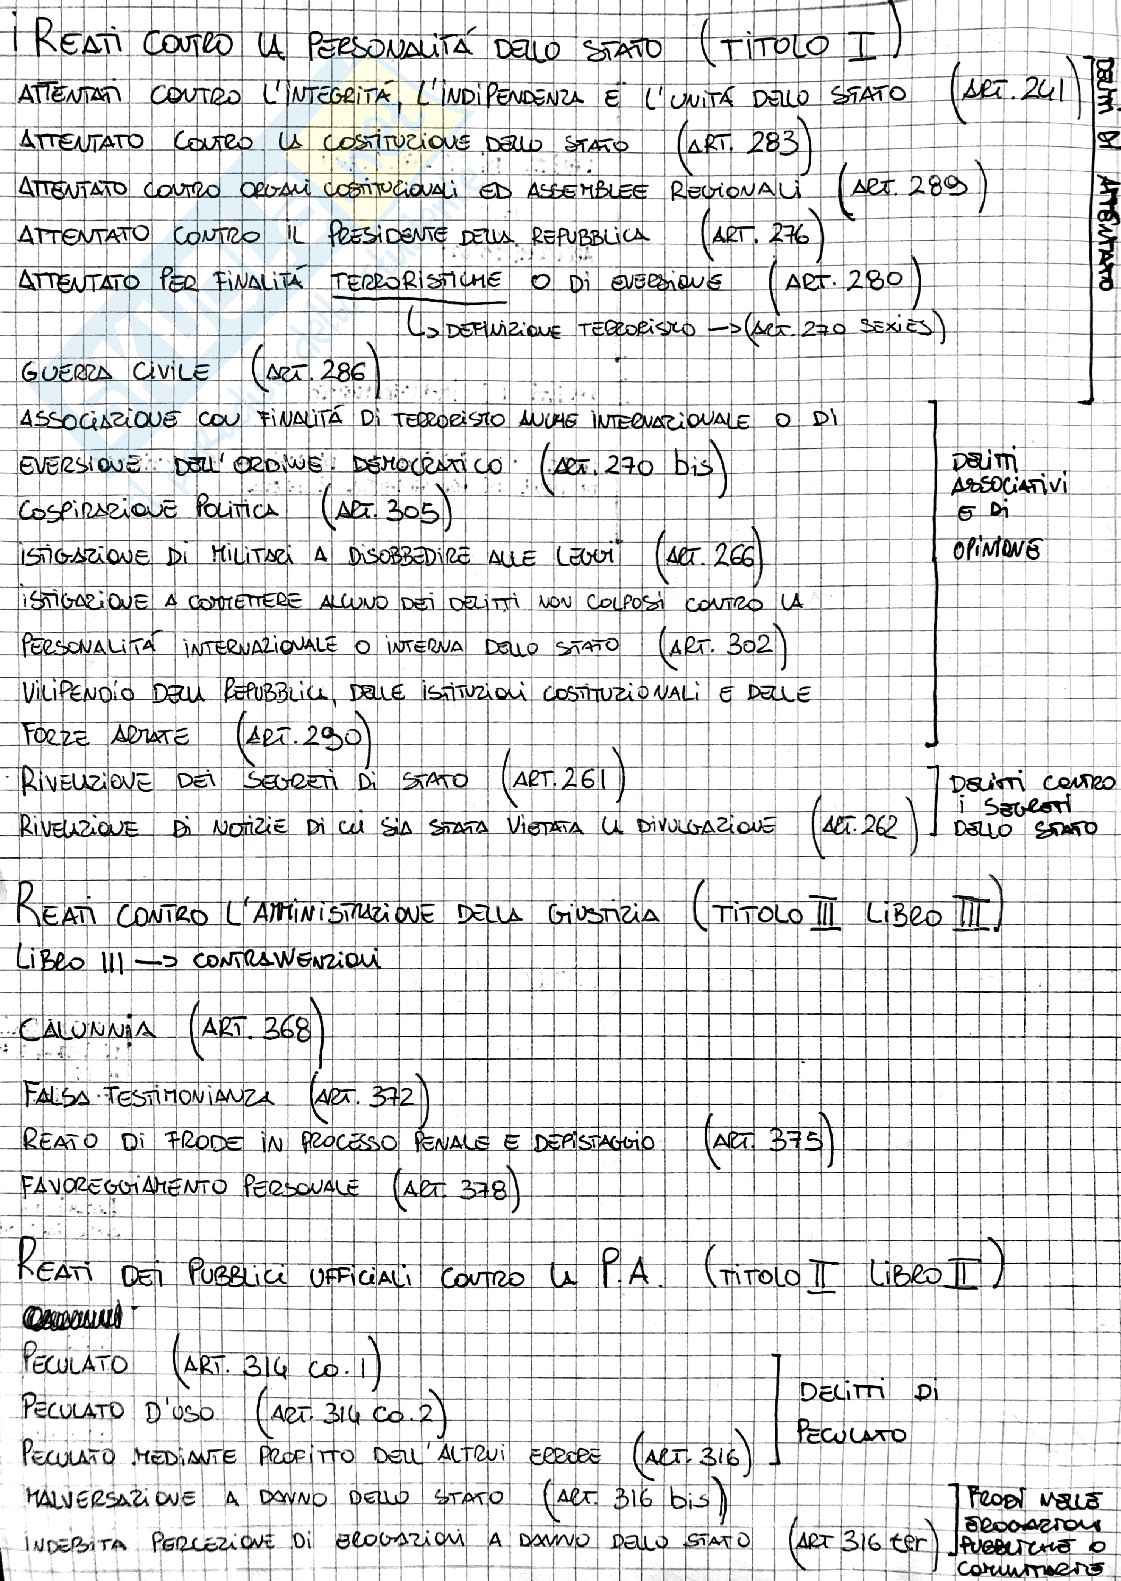 I REATI CONTRO LA PERSONALITÁ DELLO STATO (TITOLO I)
ATTENTATI CONTRO L'INTEGRITÁ, L'INDIPENDENZA E L'UNITÁ DELLO STATO (ART. 241)
ATTENTATO CONTRO LA COSTITUZIONE DELLO STATO (ART. 283)
ATTENTATO CONTRO ORGANI COSTITUZIONALI ED ASSEMBLEE REGIONALI (ART. 289)
ATTENTATO CONTRO IL PRESIDENTE DELLA REPUBBLICA (ART. 276)
ATTENTATO PER FINALITÁ TERRORISTICHE O DI EVERSIONE (ART. 280)
↳ DEFINIZIONE TERRORISMO → (ART. 270 SEXIES)
GUERRA CIVILE (ART. 286)
DELITTI DI ATTENTATO
ASSOCIAZIONE CON FINALITÁ DI TERRORISMO ANCHE INTERNAZIONALE O DI
EVERSIONE DELL'ORDINE DEMOCRATICO (ART. 270 bis)
COSPIRAZIONE POLITICA (ART. 305)
ISTIGAZIONE DI MILITARI A DISOBBEDIRE ALLE LEGGI (ART. 266)
ISTIGAZIONE A COMMETTERE ALCUNO DEI DELITTI NON COLPOSI CONTRO LA
PERSONALITÁ INTERNAZIONALE O INTERNA DELLO STATO (ART. 302)
VILIPENDIO DELLA REPUBBLICA, DELLE ISTITUZIONI COSTITUZIONALI E DELLE
FORZE ARMATE (ART. 290)
DELITTI
ASSOCIATIVI
E DI
OPINIONE
RIVELAZIONE DEI SEGRETI DI STATO (ART. 261)
RIVELAZIONE DI NOTIZIE DI CUI SIA STATA VIETATA LA DIVULGAZIONE (ART. 262)
DELITTI CONTRO
I SEGRETI
DELLO STATO
REATI CONTRO L'AMMINISTRAZIONE DELLA GIUSTIZIA (TITOLO III LIBRO III)
LIBRO III → CONTRAVVENZIONI
CALUNNIA (ART. 368)
FALSA TESTIMONIANZA (ART. 372)
REATO DI FRODE IN PROCESSO PENALE E DEPISTAGGIO (ART. 375)
FAVOREGGIAMENTO PERSONALE (ART. 378)
REATI DEI PUBBLICI UFFICIALI CONTRO LA P.A. (TITOLO II LIBRO II)
PECULATO (ART. 314 CO. 1)
PECULATO D'USO (ART. 314 CO. 2)
PECULATO MEDIANTE PROFITTO DELL'ALTRUI ERRORE (ART. 316)
DELITTI DI
PECULATO
MALVERSAZIONE A DANNO DELLO STATO (ART. 316 bis)
INDEBITA PERCEZIONE DI EROGAZIONI A DANNO DELLO STATO (ART 316 ter)
FRODI NELLE
EROGAZIONI
PUBBLICHE O
COMUNITARIE